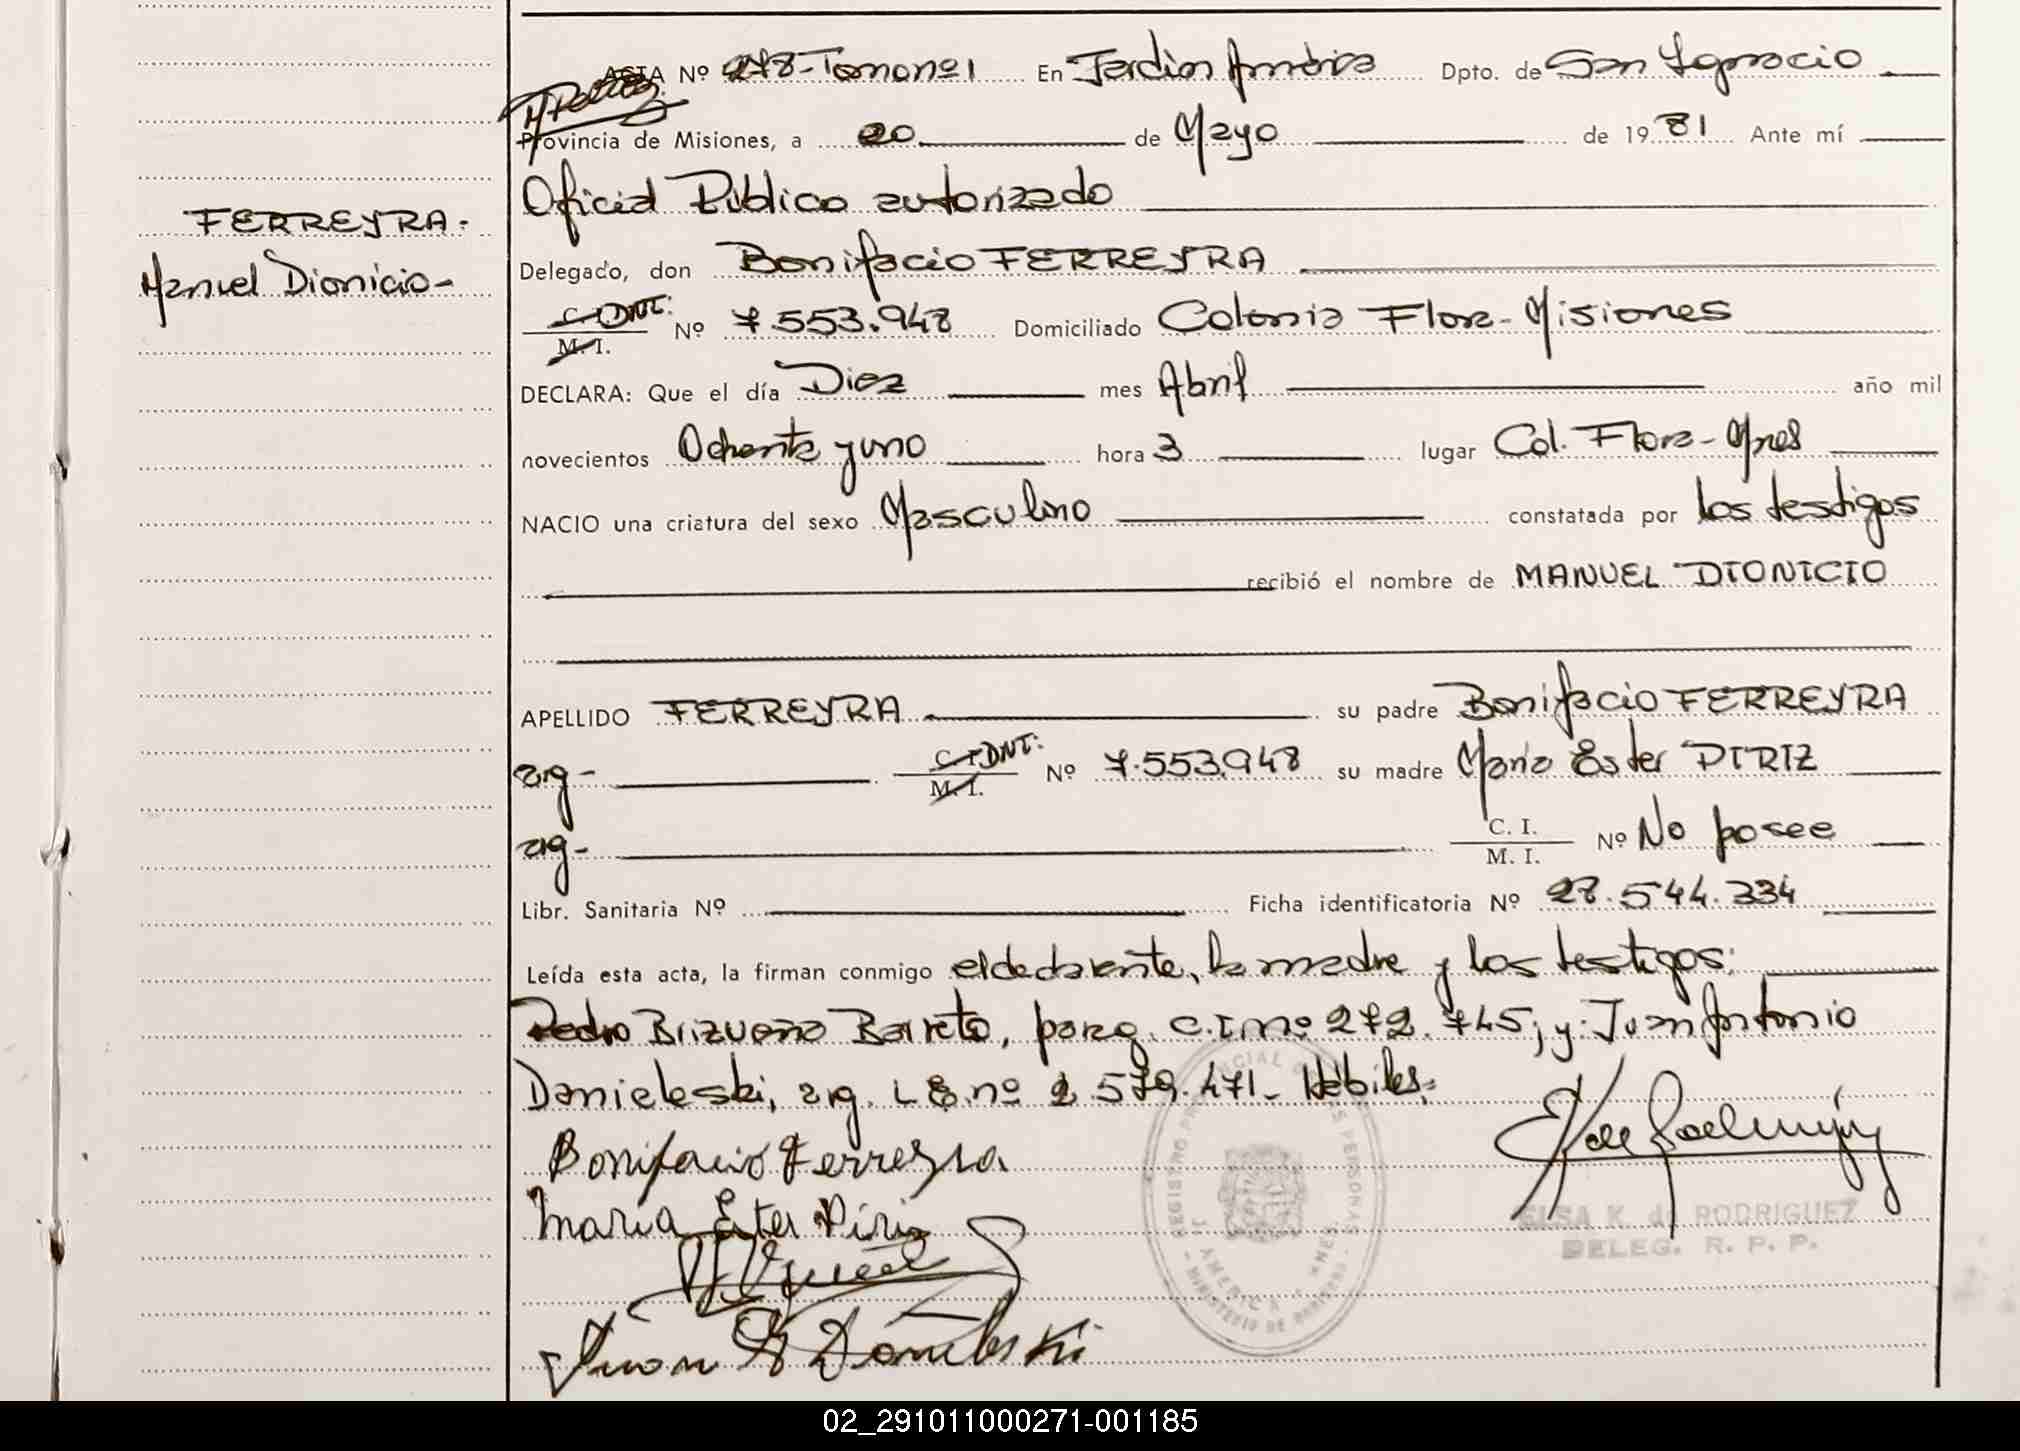 ACTA Nº 278-Tomo nº 1 En Jardin América Dpto. de San Ignacio
Provincia de Misiones, a 20 de Mayo de 1981 Ante mí
Oficial Público autorizado
FERREYRA.
Delegado, don Bonifacio FERREYRA
Manuel Dionicio-
C.I. DNI: Nº 7.553.948 Domiciliado Colonia Flora-Misiones
M. I.
DECLARA: Que el día Diez mes Abril año mil
novecientos Ochenta y uno hora 3 lugar Col. Flora-Mnes
NACIO una criatura del sexo Masculino constatada por los testigos
recibió el nombre de MANUEL DIONICIO
APELLIDO FERREYRA su padre Bonifacio FERREYRA
arg- C.I. DNI: Nº 7.553.948 su madre Maria Ester PIRIZ
M. I.
arg- C. I. Nº No posee
M. I.
Libr. Sanitaria Nº Ficha identificatoria Nº 28.544.334
Leída esta acta, la firman conmigo el declarante, la madre y los testigos:
Pedro Brizueña Barreto, parag. C.I nº 272.745; y: Juan Antonio
Danieleski, arg. L E. nº 2.579.471- Hábiles.
Bonifacio Ferreyra
María Ester Piriz
ELSA K. de RODRIGUEZ
DELEG. R. P. P.
Juan A Danieleski
REGISTRO PROVINCIAL DE LAS PERSONAS
J. AMERICA - MNES.
MINISTERIO DE GOBIERNO
02_291011000271-001185